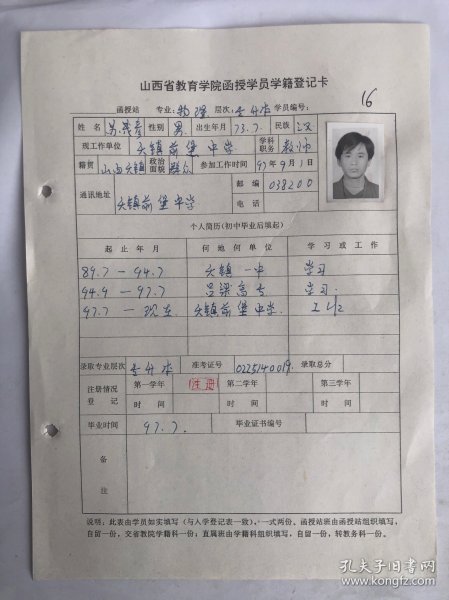 山西省教育学院函授学员学籍登记卡
16
函授站 专业：物理 层次：专升本 学员编号：
姓名 性别 男 出生年月 73.7 民族 汉
现工作单位 天镇前堡中学 学科职务 教师
籍贯 山西天镇 政治面貌 群众 参加工作时间 97年9月1日
通讯地址 天镇前堡中学 邮编 038200
电话
个人简历（初中毕业后填起）
起止年月 何地何单位 学习或工作
89.7—94.7 天镇一中 学习
94.9—97.7 吕梁高专 学习.
97.7—现在. 天镇前堡中学. 工作
录取专业层次 专升本 准考证号 0225140019. 录取总分
注册情况登记 第一学年 注册 第二学年 第三学年
时间 时间 时间
毕业时间 97.7. 毕业证书编号
备
注
说明：此表由学员如实填写（与入学登记表一致），一式两份。函授站班由函授站组织填写，
自留一份，交省教院学籍科一份；直属班由学籍科组织填写，自留一份，转教务科一份。
孔夫子旧书网